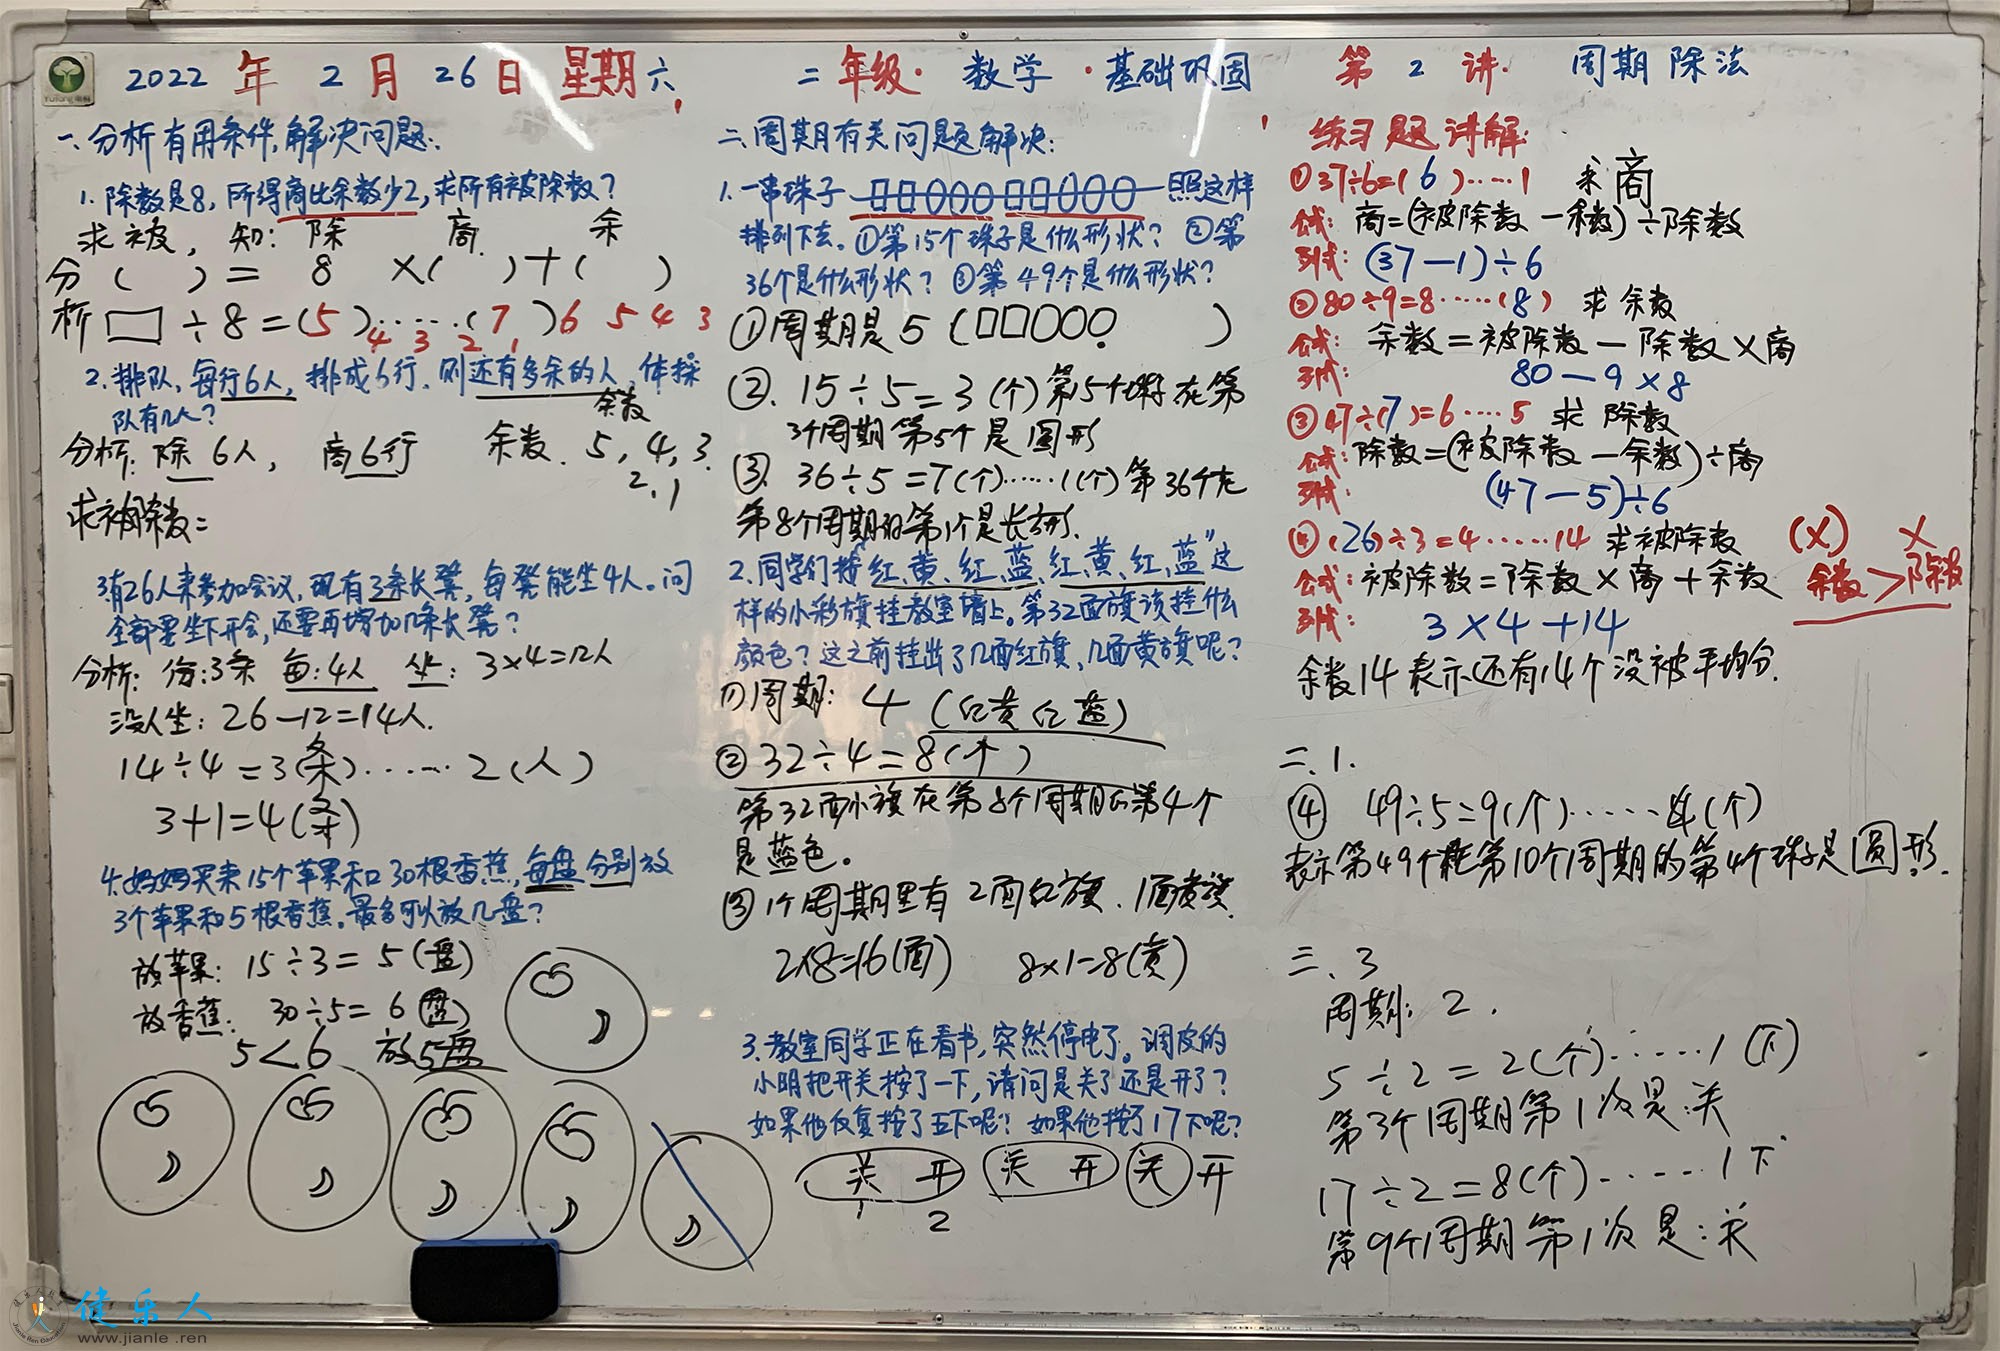 2022年2月26日 星期六 二年级·数学·基础巩固 第2讲·周期除法
一、分析有用条件,解决问题:
1.除数是8,所得商比余数少2,求所有被除数?
求被,知:除 商 余
分( )= 8 ×( )+( )
析 □÷8=(5)……(7)6 5 4 3
4 3 2 1
2.排队,每行6人,排成6行,则还有多余的人,体操
余数
队有几人?
分析:除6人, 商6行 余数.5,4,3.
2,1
求被除数=
3.有26人来参加会议,现有3条长凳,每凳能坐4人。问
全部要坐下开会,还要再增加几条长凳?
分析: 有:3条 每:4人 坐:3×4=12人
没人坐:26-12=14人.
14÷4=3(条)……2(人)
3+1=4(条)
4.妈妈买来15个苹果和30根香蕉,每盘分别放
3个苹果和5根香蕉。最多可以放几盘?
放苹果:15÷3=5(盘)
放香蕉:30÷5=6(盘)
5<6 放5盘
二、周期有关问题解决:
1.一串珠子 □□○○○□□○○○ 照这样
排列下去。①第15个珠子是什么形状? ②第
36个是什么形状? ③第49个是什么形状?
①周期是5(□□○○○ )
②.15÷5=3(个)第15个珠子在第
3个周期第5个是圆形
③.36÷5=7(个)……1(个)第36个在
第8个周期的第1个是长方形.
2.同学们按“红、黄、红、蓝、红、黄、红、蓝”这
样的小彩旗挂教室墙上。第32面旗该挂什么
颜色?这之前挂出了几面红旗、几面黄旗呢?
①周期: 4 (红黄红蓝)
②32÷4=8(个)
第32面小旗在第8个周期的第4个
是蓝色。
③1个周期里有2面红旗.1面黄旗.
2×8=16(面) 8×1=8(黄)
3.教室同学正在看书,突然停电了。调皮的
小明把开关按了一下,请问是关了还是开了?
如果他反复按了五下呢? 如果他按了17下呢?
关 开 关 开 关 开
1 2
练习题讲解:
①37÷6=(6)……1 求商
公式:商=(被除数-余数)÷除数
列式:(37-1)÷6
②80÷9=8……(8) 求余数
公式: 余数=被除数-除数×商
列式: 80-9×8
③47÷(7)=6……5 求除数
公式:除数=(被除数-余数)÷商
列式: (47-5)÷6
④(26)÷3=4……14 求被除数 (×) ×
公式:被除数=除数×商+余数 余数>除数
列式: 3×4+14
余数14表示还有14个没被平均分.
二、1.
④ 49÷5=9(个)……4(个)
表示第49个在第10个周期的第4个珠子是圆形.
三、3
周期:2.
5÷2=2(个)……1(下)
第3个周期第1次是:关
17÷2=8(个)……1下
第9个周期第1次是:关
健乐人
www.jianle.ren